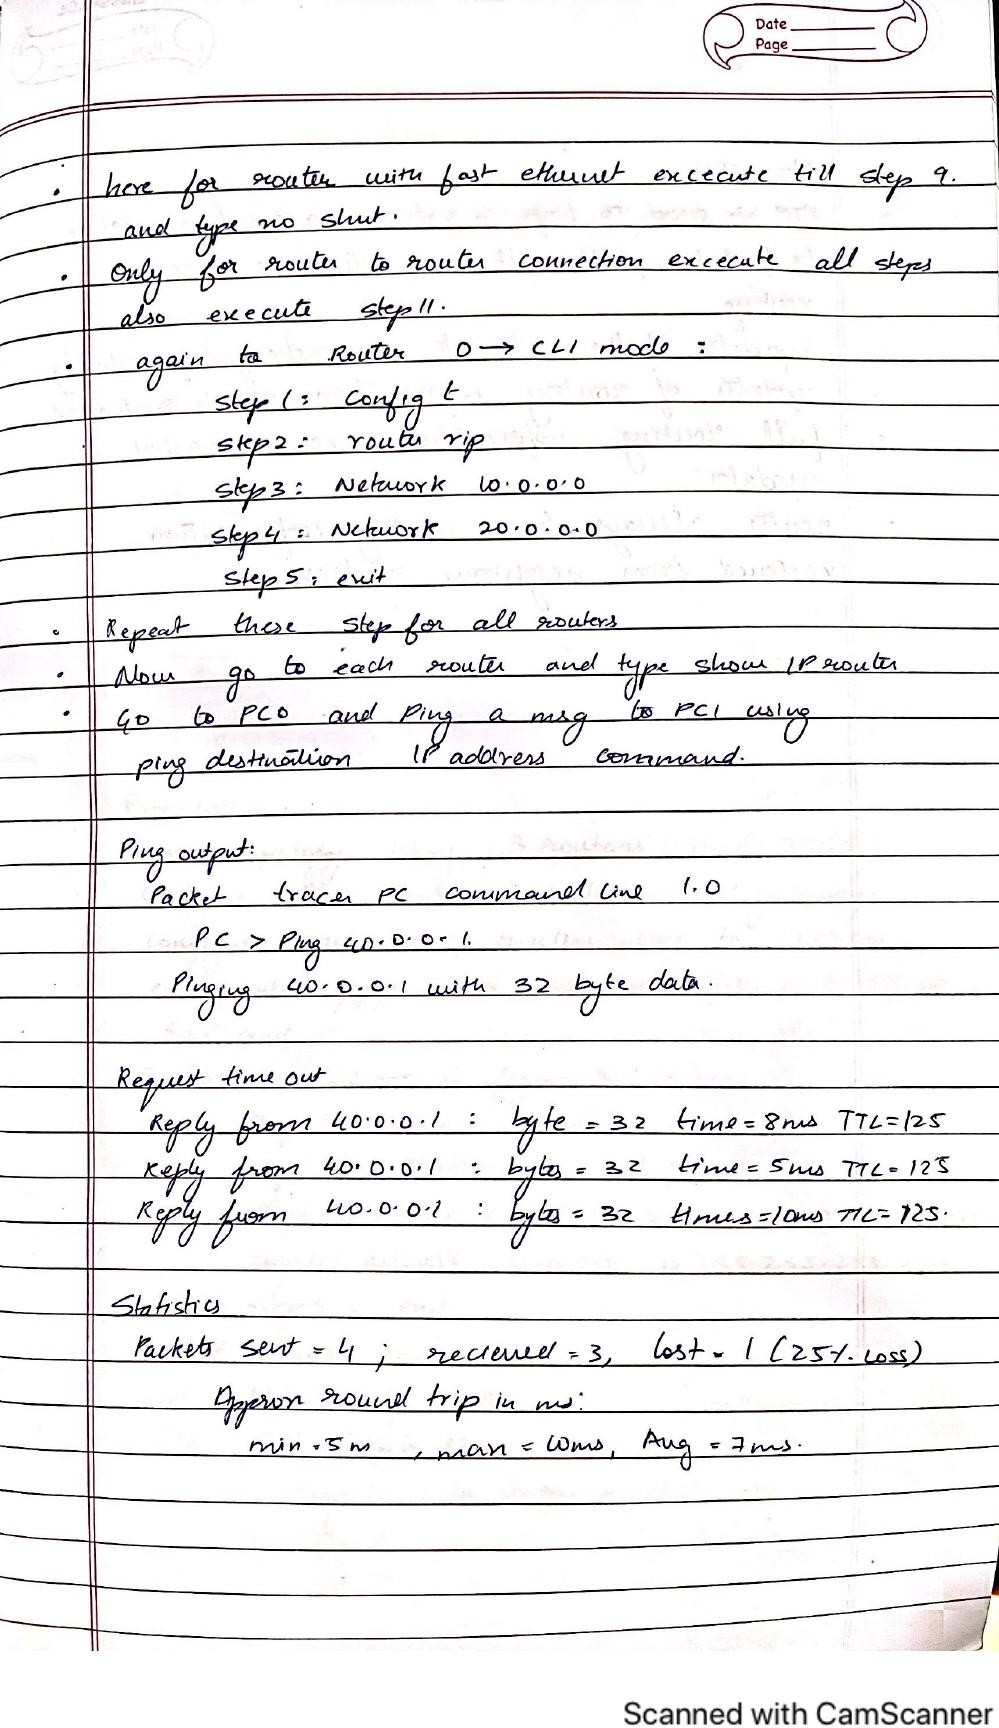 Date
Page
here for router with fast ethernet excecute till step 9.
and type no shut.
Only for router to router connection excecute all steps
also execute step 11.
again to Router 0 → CLI mode :
Step 1 : Config t
Step 2 : router rip
Step 3 : Network 10.0.0.0
Step 4 : Network 20.0.0.0
Step 5 : exit
Repeat these step for all routers
Now go to each router and type show IP router
Go to PC0 and Ping a msg to PC1 using
ping destination IP address command.
Ping output:
Packet tracer PC command line 1.0
PC > Ping 40.0.0.1.
Pinging 40.0.0.1 with 32 byte data.
Request time out
Reply from 40.0.0.1 : byte = 32 time = 8ms TTL=125
Reply from 40.0.0.1 : bytes = 32 time = 5ms TTL = 125
Reply from 40.0.0.1 : bytes = 32 times = 10ms TTL = 125.
Statistics
Packets sent = 4 ; recieved = 3, lost = 1 (25% loss)
Approx round trip in ms:
min = 5m , max = 10ms, Avg = 7ms.
Scanned with CamScanner